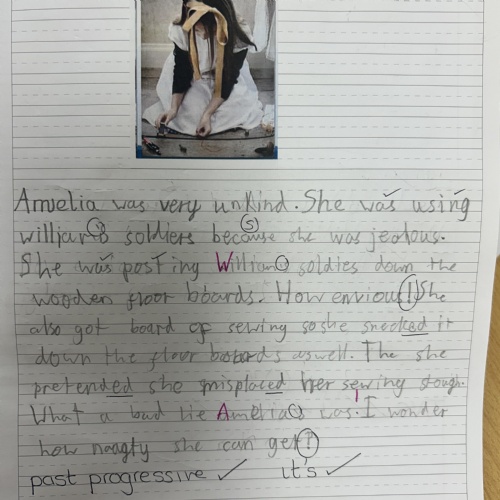 Amelia was very unkind. She was using
william's soldiers because she was jealous.
She was posting William's soldies down the
wooden floor boards. How envious! She
also got board of sewing so she sneaked it
down the floor boards aswell. The she
pretended she misplaced her sewing
What a bad lie Amelia's was. I wonder
how naagty she can get!
past progressive ✓ it's ✓